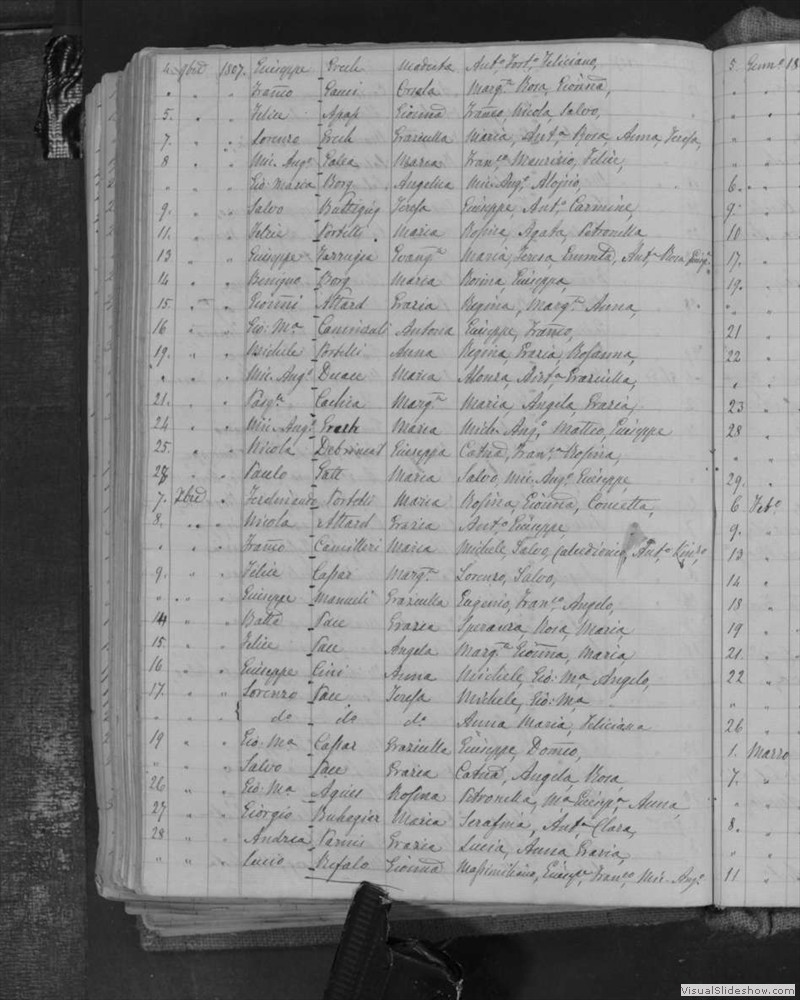 4 9bre 1807. Giuseppe Grech Modesta Ant.o Fort.o Feliciano,
" " " Franco Orsola Marg.ta Rosa, Gionna,
5. " " Felice Agap Gionna Franco, Nicola, Salvo,
7. " " Lorenzo Grech Graziulla Maria, Ant.a Rosa Anna, Teresa,
8 " " Mic. Ang.o Maria Fran.co Maurizio, Felice,
" " Gio: Maria Borg Angelica Mic. Ang.o Aloisio,
9. " " Salvo Buttigieg Teresa Giuseppe, Ant.o Carmine,
11. " " Felice Portelli Maria Rosina, Agata, Petronilla
13 " " Giuseppe Farrugia Evang.ta Maria, Teresa, Ant.a Rosa
14 " " Benigno Borg Maria Rosina, Giuseppa,
15 " " Gionni Attard Grazia Regina, Marg.ta Anna,
16 " " Gio: Ma Antona Giuseppe, Franco,
19. " " Michele Portelli Anna Regina, Grazia, Rosanna,
" " " Mic. Ang.o Maria Ant.a Graziulla,
21. " " Pasq.le Cachia Marg.ta Maria, Angela, Grazia,
24 " " Mic. Ang.o Grech Maria Mich. Ang.o Matteo, Giuseppe
25. " " Nicola Debrincat Giuseppa Catna, Fran.ca Rosina,
28 " " Paulo Galt Maria Salvo, Mic. Ang.o Giuseppe,
7. Xbre " Ferdinando Portelli Maria Rosina, Gionna, Concetta,
8. " " Nicola Attard Grazia Ant.o Giuseppe,
" " " Franco Camilleri Maria Michele, Salvo, Ant.o
9. " " Felice Caspar Marg.ta Lorenzo, Salvo,
" " " Giuseppe Manueli Graziulla Eugenio, Fran.co Angelo,
14 " " Batta Pace Grazia Speranza, Rosa, Maria,
15. " " Felice Pace Angela Marg.ta Gionna, Maria,
16 " " Giuseppe Cini Anna Michele, Gio: Ma Angelo,
17. " " Lorenzo Pace Teresa Michele, Gio: Ma
" " { do do do Anna Maria, Feliciana
19 " " Gio: Ma Caspar Graziulla Giuseppe, Domco,
" " " Salvo Pace Grazia Catna, Angela, Rosa,
26 " " Gio: Ma Agius Rosina Petronilla, Ma Anna,
27 " " Giorgio Buhagiar Maria Serafina, Ant.a Clara,
28 " " Andrea Parnis Grazia Lucia, Anna Grazia,
" " " Lucio Bufalo Gionna Massimiliano, Fran.co Mic. Ang.o
5. Genn.o 18
6. "
9. "
10 "
17. "
19. "
21 "
22 "
23 "
28 "
29. "
6 Feb.o
9. "
13 "
14 "
18 "
19 "
21. "
22 "
26 "
1. Marzo
7. "
8. "
11 "
VisualSlideshow.com